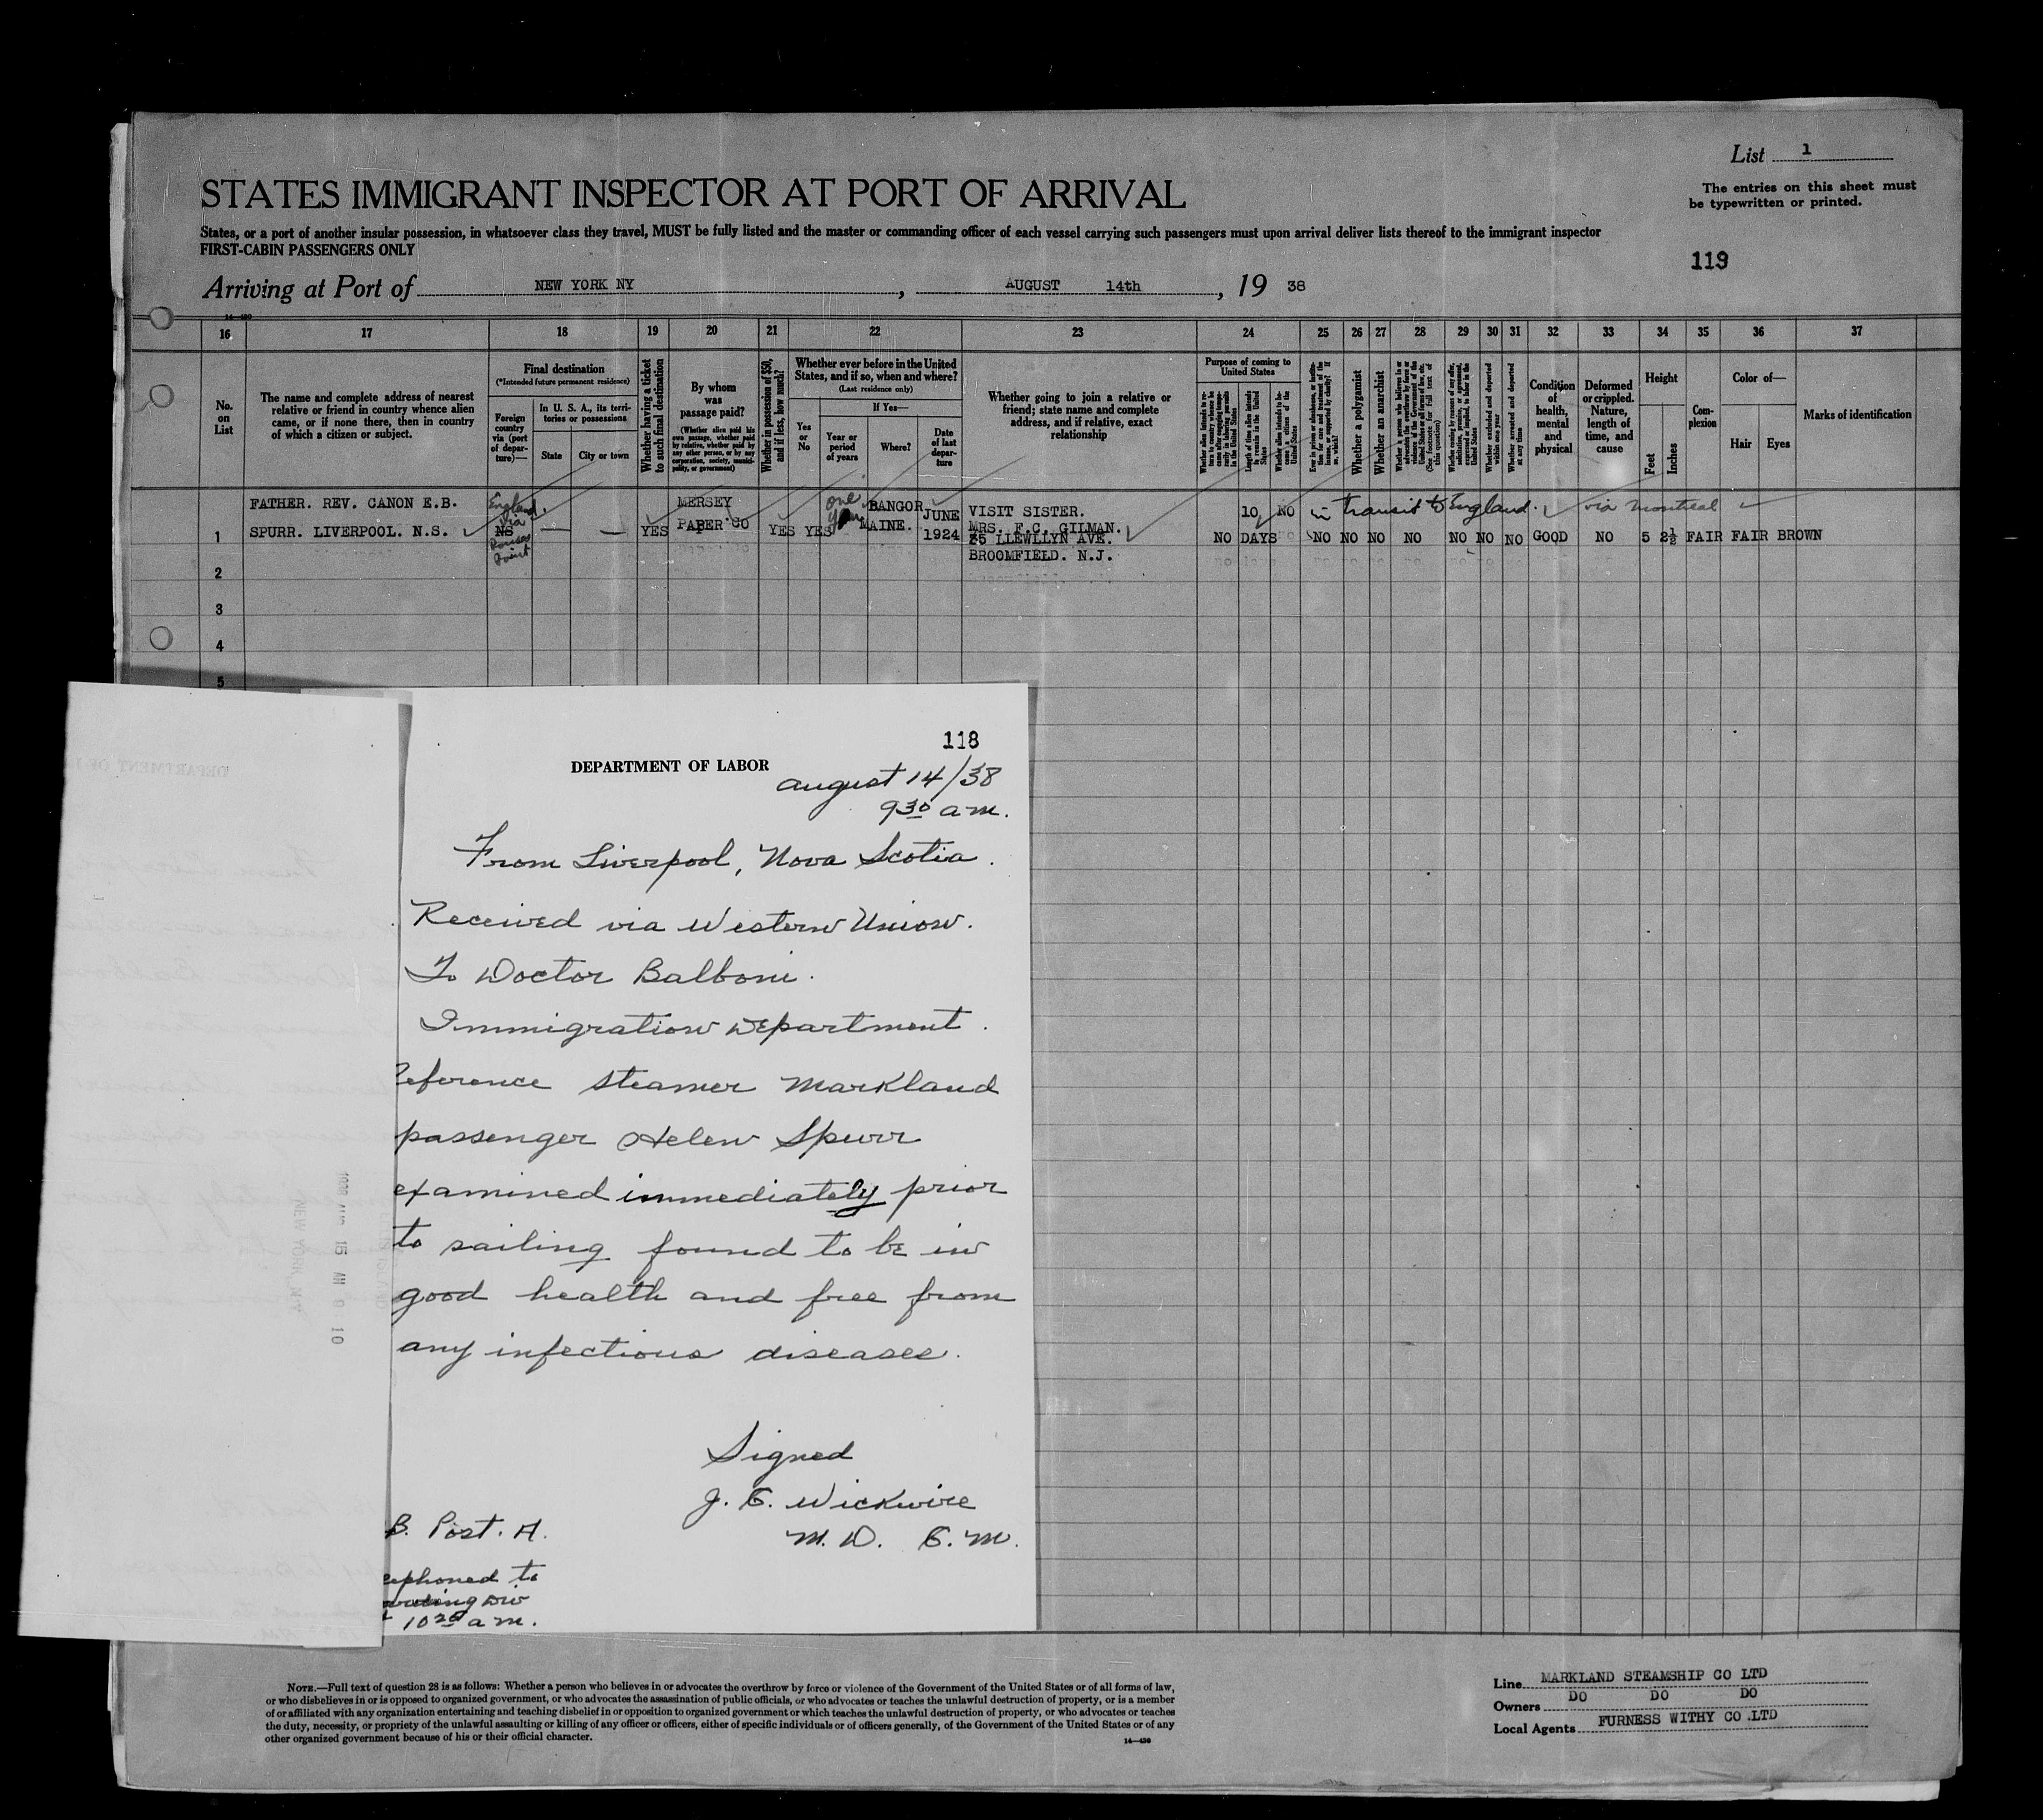 List 1
STATES IMMIGRANT INSPECTOR AT PORT OF ARRIVAL
The entries on this sheet must
be typewritten or printed.
States, or a port of another insular possession, in whatsoever class they travel, MUST be fully listed and the master or commanding officer of each vessel carrying such passengers must upon arrival deliver lists thereof to the immigrant inspector
FIRST-CABIN PASSENGERS ONLY
119
Arriving at Port of NEW YORK NY, AUGUST 14th, 19 38
16 17 18 19 20 21 22 23 24 25 26 27 28 29 30 31 32 33 34 35 36 37
No.
on
List
The name and complete address of nearest
relative or friend in country whence alien
came, or if none there, then in country
of which a citizen or subject.
Final destination
(*Intended future permanent residence)
Foreign
country
via (port
of depar-
ture)—
In U. S. A., its terri-
tories or possessions
State
City or town
Whether having a ticket
to such final destination
By whom
was
passage paid?
(Whether alien paid his
own passage, whether paid
by relative, whether paid by
any other person, or by any
corporation, society, munici-
pality, or government)
Whether in possession of $50,
and if less, how much?
Whether ever before in the United
States, and if so, when and where?
(Last residence only)
Yes
or
No
If Yes—
Year or
period
of years
Where?
Date
of last
depar-
ture
Whether going to join a relative or
friend; state name and complete
address, and if relative, exact
relationship
Purpose of coming to
United States
Length of time alien intends
to remain in the United
States
Whether a polygamist
Whether an anarchist
Whether excluded and deported
within one year
Whether arrested and deported
at any time
Condition
of
health,
mental
and
physical
Deformed
or crippled.
Nature,
length of
time, and
cause
Height
Feet
Inches
Com-
plexion
Color of—
Hair
Eyes
Marks of identification
FATHER. REV. CANON E.B.
1 SPURR. LIVERPOOL. N.S.
England
via
NS
Rouses
Point
— —
YES
MERSEY
PAPER CO
YES YES
one
year
BANGOR
MAINE.
JUNE
1924
VISIT SISTER.
MRS. F.C. GILMAN.
25 LLEWLLYN AVE.
BROOMFIELD. N.J.
NO 10 DAYS NO
in transit to England. via Montreal
NO NO NO NO NO NO NO GOOD NO 5 2½ FAIR FAIR BROWN
2
3
4
5
118
DEPARTMENT OF LABOR
August 14/38
9 30 a m.
From Liverpool, Nova Scotia.
Received via Western Union.
To Doctor Balboni.
Immigration Department.
Reference steamer Markland
passenger Helen Spurr
examined immediately prior
to sailing found to be in
good health and free from
any infectious diseases.
Signed
J. C. Wickwire
M. D. C. M.
B. Post. H.
ephoned to
Div
10 20 a m.
NOTE.—Full text of question 28 is as follows: Whether a person who believes in or advocates the overthrow by force or violence of the Government of the United States or of all forms of law,
or who disbelieves in or is opposed to organized government, or who advocates the assassination of public officials, or who advocates or teaches the unlawful destruction of property, or is a member
of or affiliated with any organization entertaining and teaching disbelief in or opposition to organized government or which teaches the unlawful destruction of property, or who advocates or teaches
the duty, necessity, or propriety of the unlawful assaulting or killing of any officer or officers, either of specific individuals or of officers generally, of the Government of the United States or of any
other organized government because of his or their official character.
14—430
Line MARKLAND STEAMSHIP CO LTD
Owners DO DO DO
Local Agents FURNESS WITHY CO .LTD